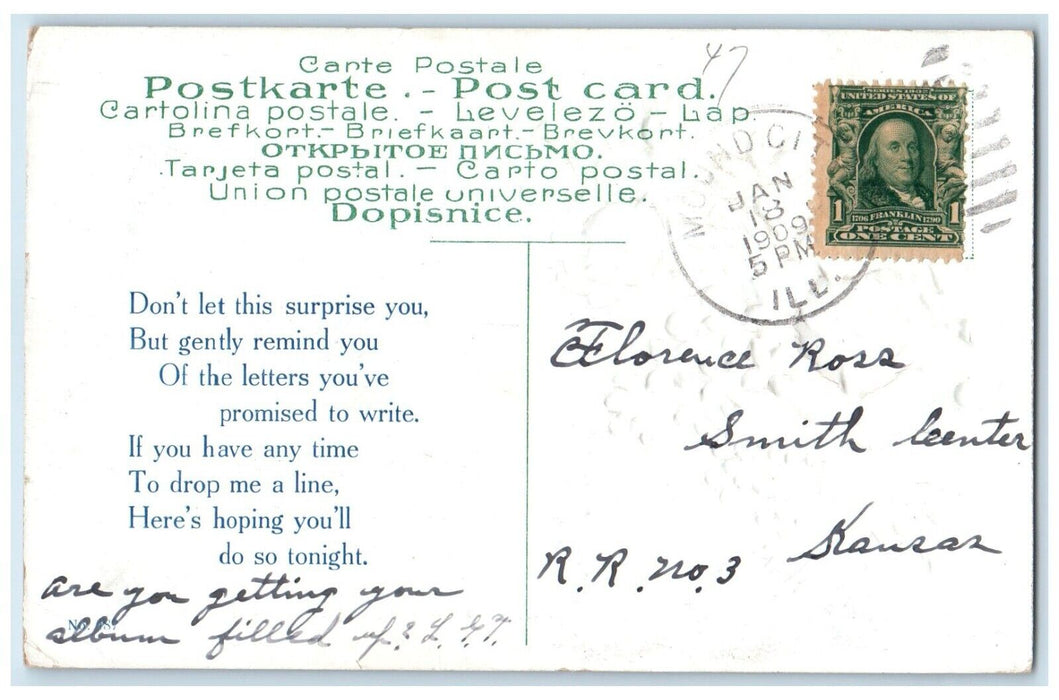 47
Carte Postale
Postkarte. - Post card.
Cartolina postale. - Levelezö - Lap.
Brefkort.- Briefkaart.- Brevkort.
ОТКРЫТОЕ ПИСЬМО.
Tarjeta postal. - Carto postal.
Union postale universelle.
Dopisnice.
SERIES 1902
UNITED STATES OF
AMERICA
1 1706 FRANKLIN 1790 1
POSTAGE
ONE CENT
MOUND CITY
JAN
18
1909
5 PM
ILL.
Don't let this surprise you,
But gently remind you
Of the letters you've
promised to write.
If you have any time
To drop me a line,
Here's hoping you'll
do so tonight.
are you getting your
album filled up?
Florence Ross
Smith Center
Kansas
R.R. No. 3